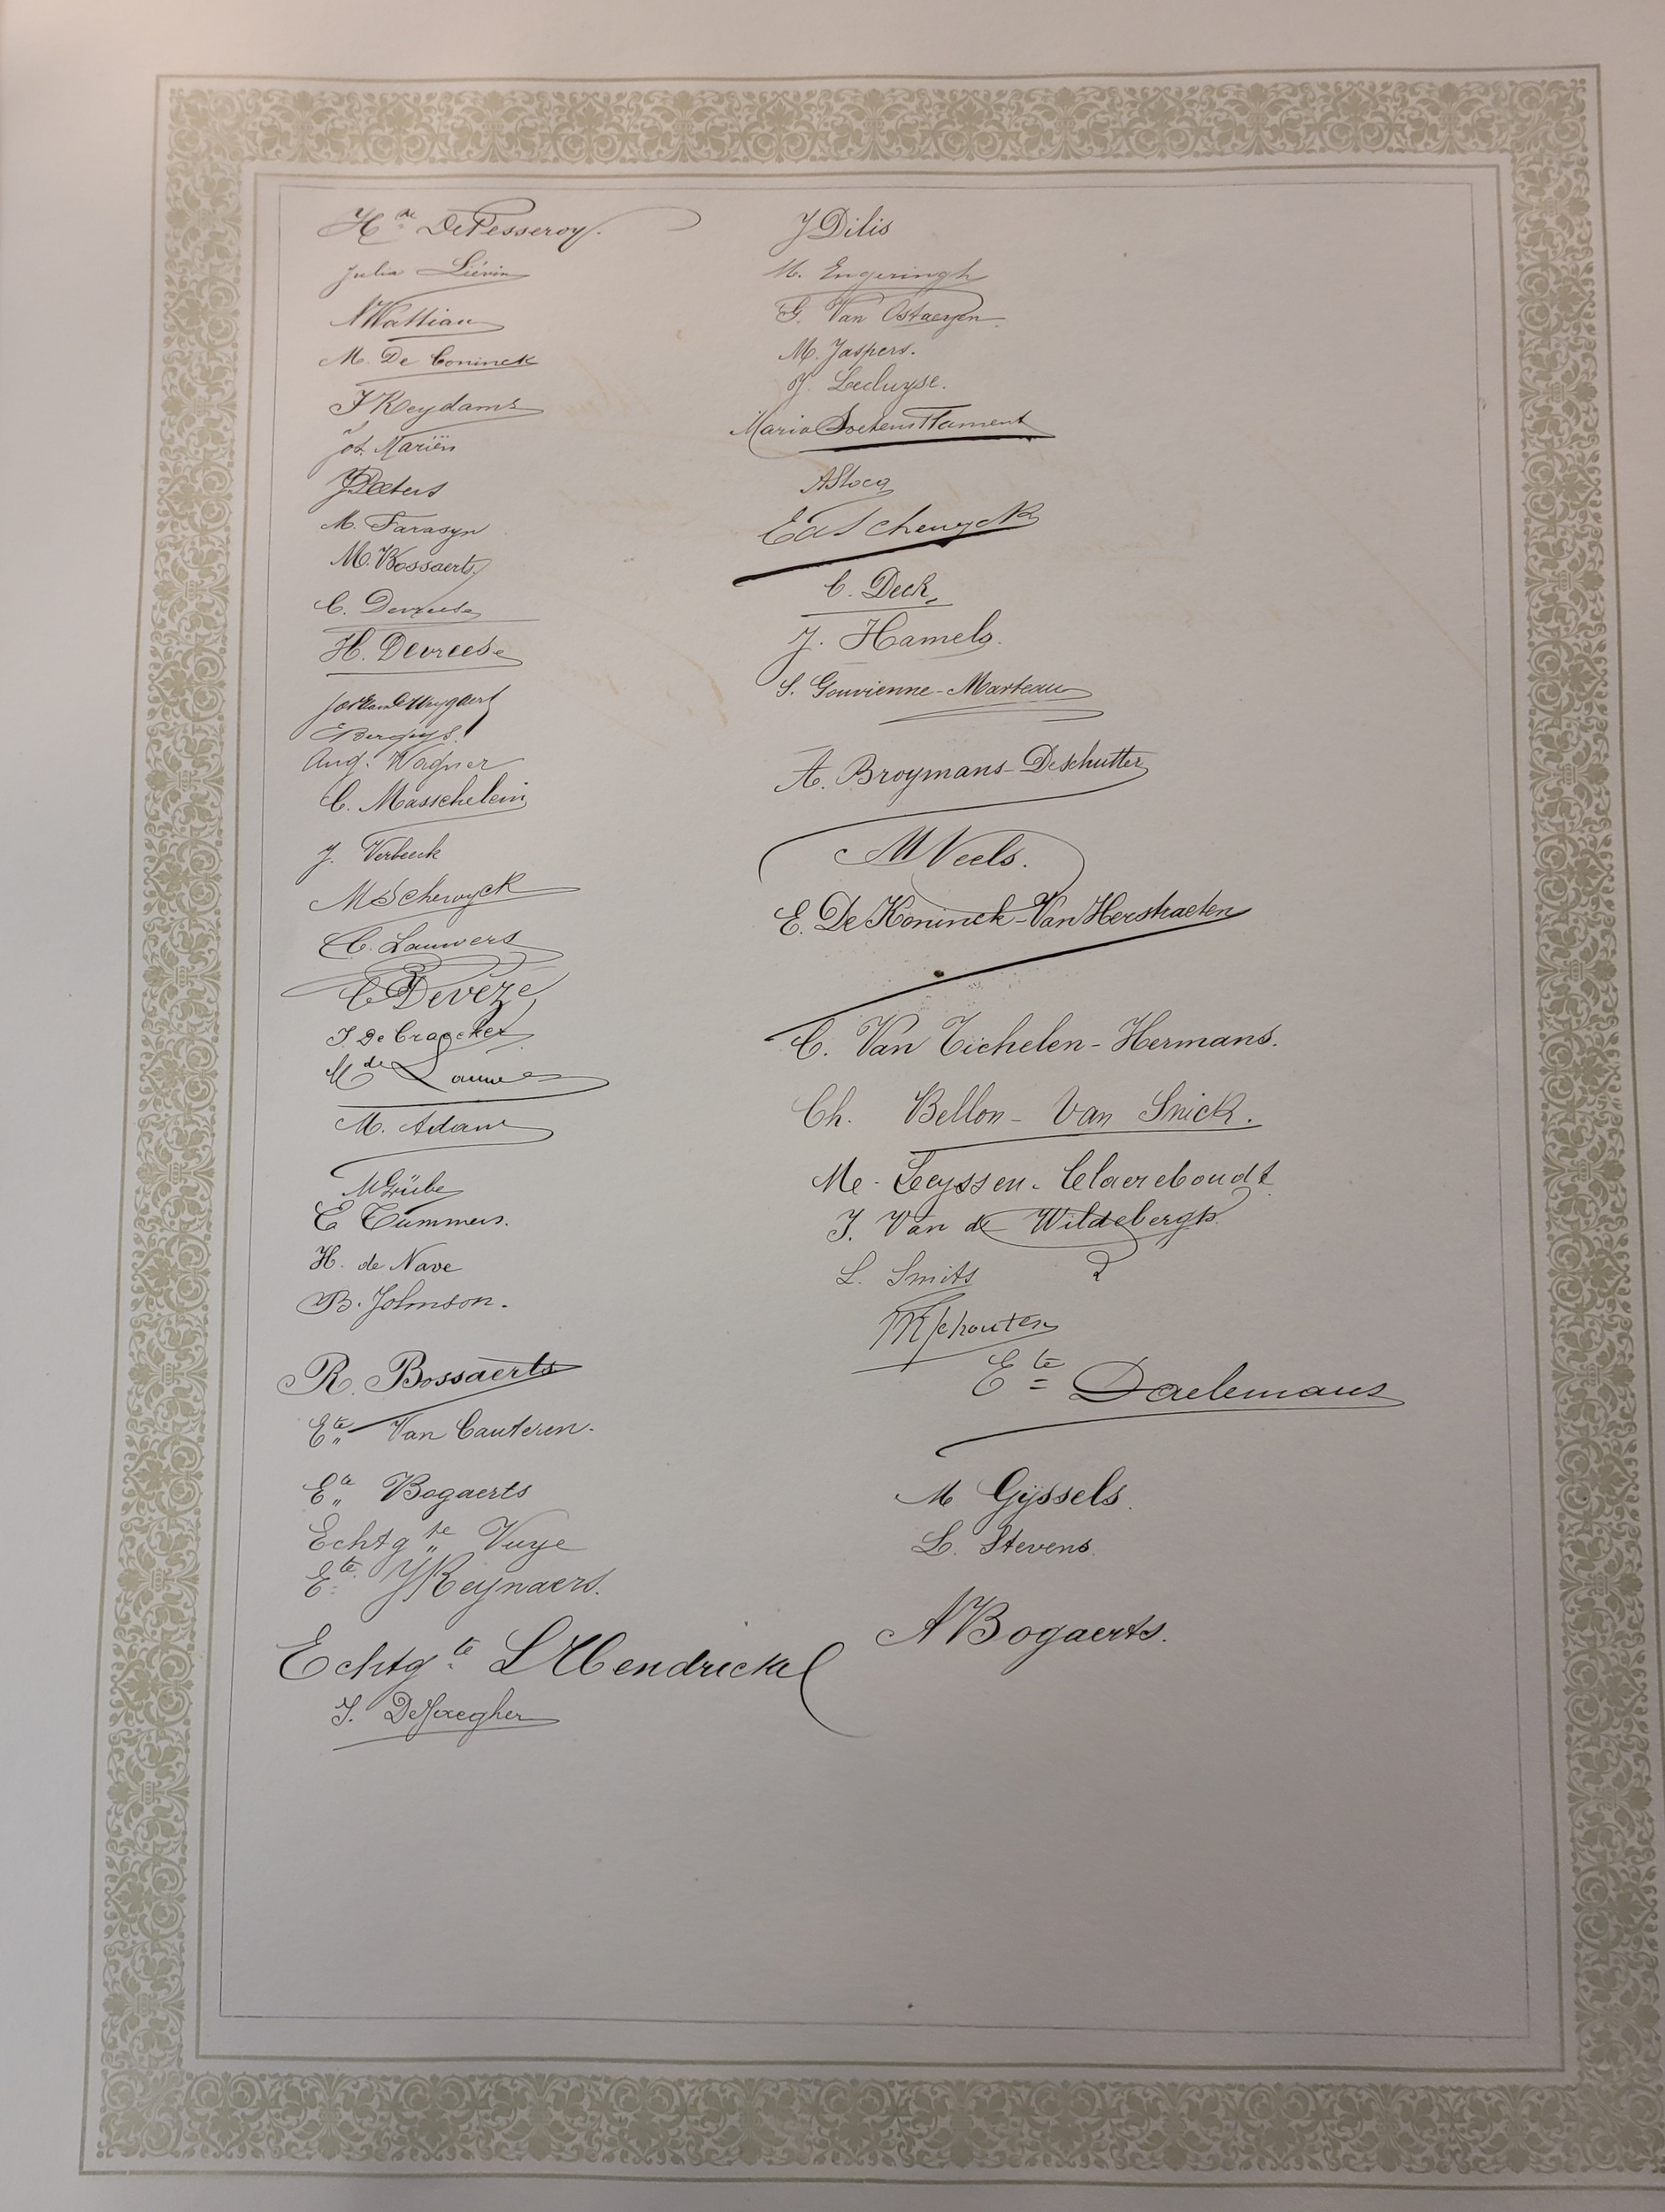 De Pesseroy.
Julia Liévin
N Wattiau
M. De Coninck
J Keydams
Jos. Mariën
J Peeters
M. Farasyn
M. Bossaerts
C. Devreese
H. Devreese
Aug. Wagner
C. Masschelein
J. Verbeeck
M Scherwyck
C. Lauwers
C Devèze
J. De Craecker
M de
M. Adam
M Grübe
C Cummers.
H. de Nave
B. Johnson.
R. Bossaerts
Ete Van Cauteren.
Ete Bogaerts
Echtgte Vuye
Ete J Reynaers.
Echtgte L Hendrickx
J. De Jaegher
J Dilis
M. Engeringh
G. Van Ostaeyen.
M. Jaspers.
J. Lecluyse.
Maria Soetens Flament
A Stocq
C. Deck
J. Hamels.
S. Gouvienne-Marteau
A. Broymans-Deschutter
M Neels.
E. De Koninck-Van Herstraeten
C. Van Tichelen-Hermans.
Ch. Bellon-Van Snick.
M. Leyssen-Claereboudt
J. Van de Wildebergh.
L. Smits
Schouten
Ete Daelemans
M Gijssels.
L. Stevens.
A Bogaerts.